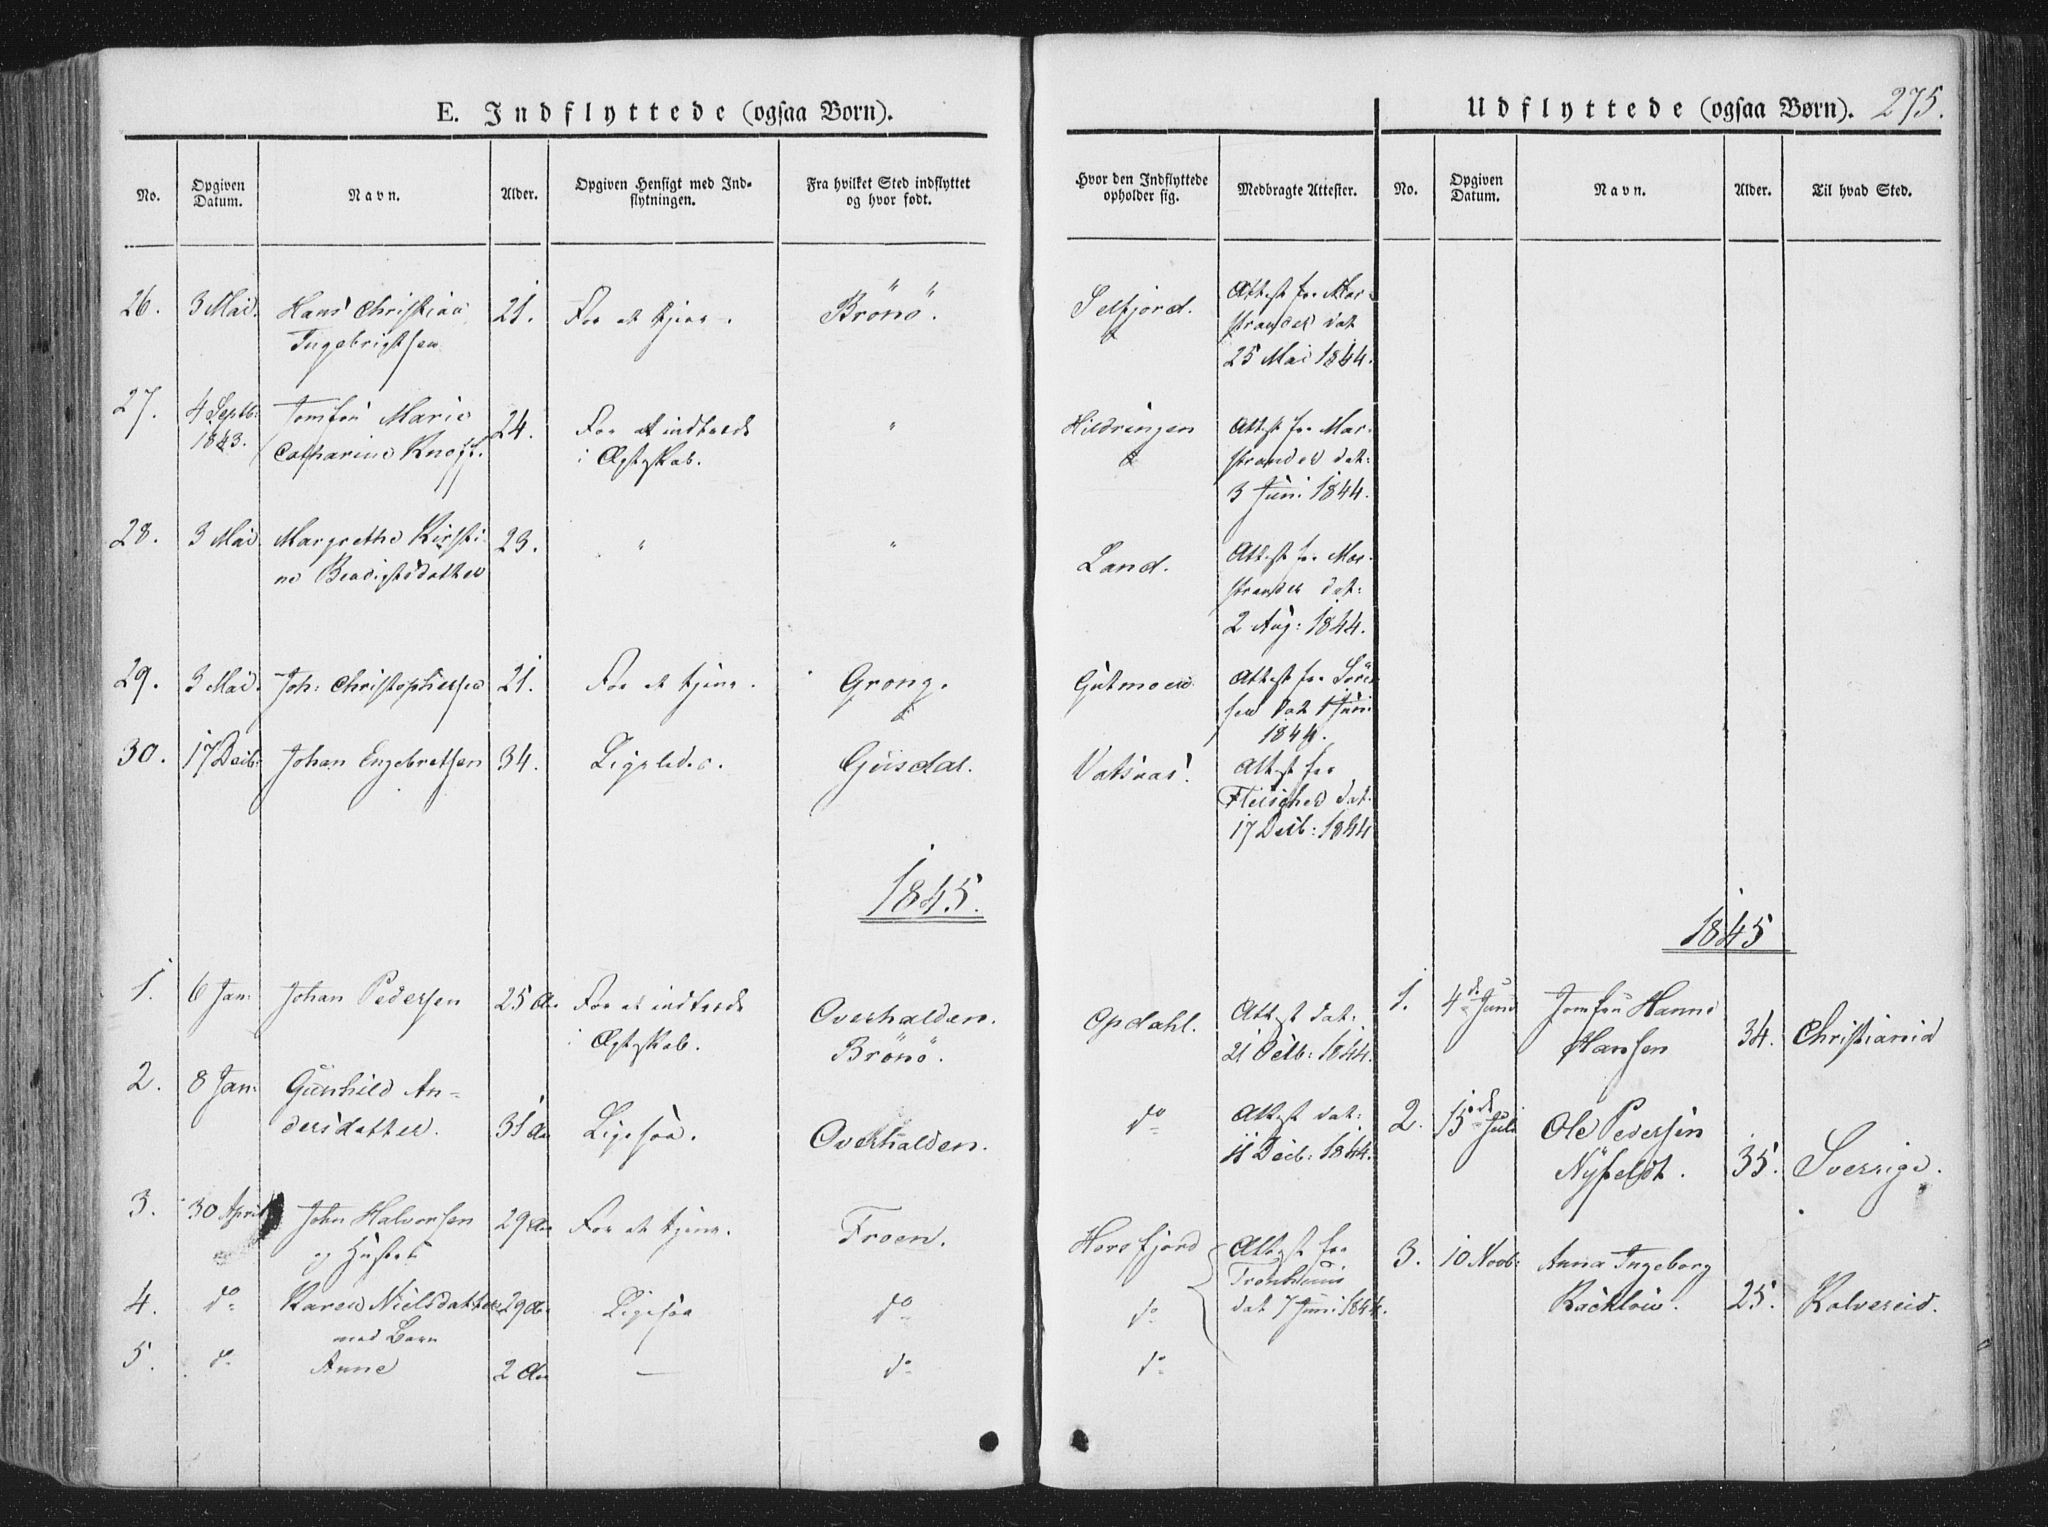 E. Indflyttede (ogsaa Børn).
No.
Opgiven Datum.
Navn.
Alder.
Opgiven Hensigt med Ind-
flytningen.
Fra hvilket Sted indflyttet
og hvor født.
26. 3 Mai. Hans Christian 21. For at tjene. Brönö.
Ingebrigtsen
27. 4 Septb: Jomfru Marie 24. For at indtræde "
1843. Catharine Knoff. i Ægteskab.
28. 3 Mai. Margrethe Kirsti- 23. " "
ne Benedigtsdatter
29. 3 Mai. Joh: Christophersen 21. For at tjene. Grong.
30. 17 Decb: Johan Engebretsen 34. Ligeledes. Gusdal.
1845.
1. 6 Jan: Johan Pedersen 25 Aar For at indtræde Overhalden.
i Ægteskab. Brönö.
2. 8 Jan: Gunhild An-
dersdatter. 31 Aar Ligesaa. Overhalden.
3. 30 April John Halvorsen 29 Aar For at tjene. Froen.
og Hustru
4. do Karen Nielsdatter 29 Aar Ligesaa do
med Barn
5. do Anne 2 Aar — do
Udflyttede (ogsaa Børn). 275.
Hvor den Indflyttede
opholder sig.
Medbragte Attester.
No.
Opgiven
Datum.
Navn.
Alder.
Til hvad Sted.
Selfjord. Attest fra Mar-
strander dat
25 Mai 1844.
Hildringen Attest fra Mar-
strander dat:
3 Juni 1844.
Land. Attest fra Mar-
strander dat:
2 Aug: 1844.
Gutmoen Attest fra Sören-
sen dat 1 Juni
1844.
Vatsnæs. Attest fra
Fleischer dat.
17 Decb: 1844
1845
Opdahl. Attest dat: 1. 4de Juni Jomfru Hanne
21 Decb: 1844. Hansen 34. Christiania
do Attest dat: 2. 15de Juli Ole Pedersen
11 Decb: 1844. Nyfeldt. 35. Sverrige.
Horsfjord Attest fra 3. 10 Novb: Anna Ingeborg
Tronhiem Racklöw. 25. Kolvereid.
do dat 7 Juni 1844.
do